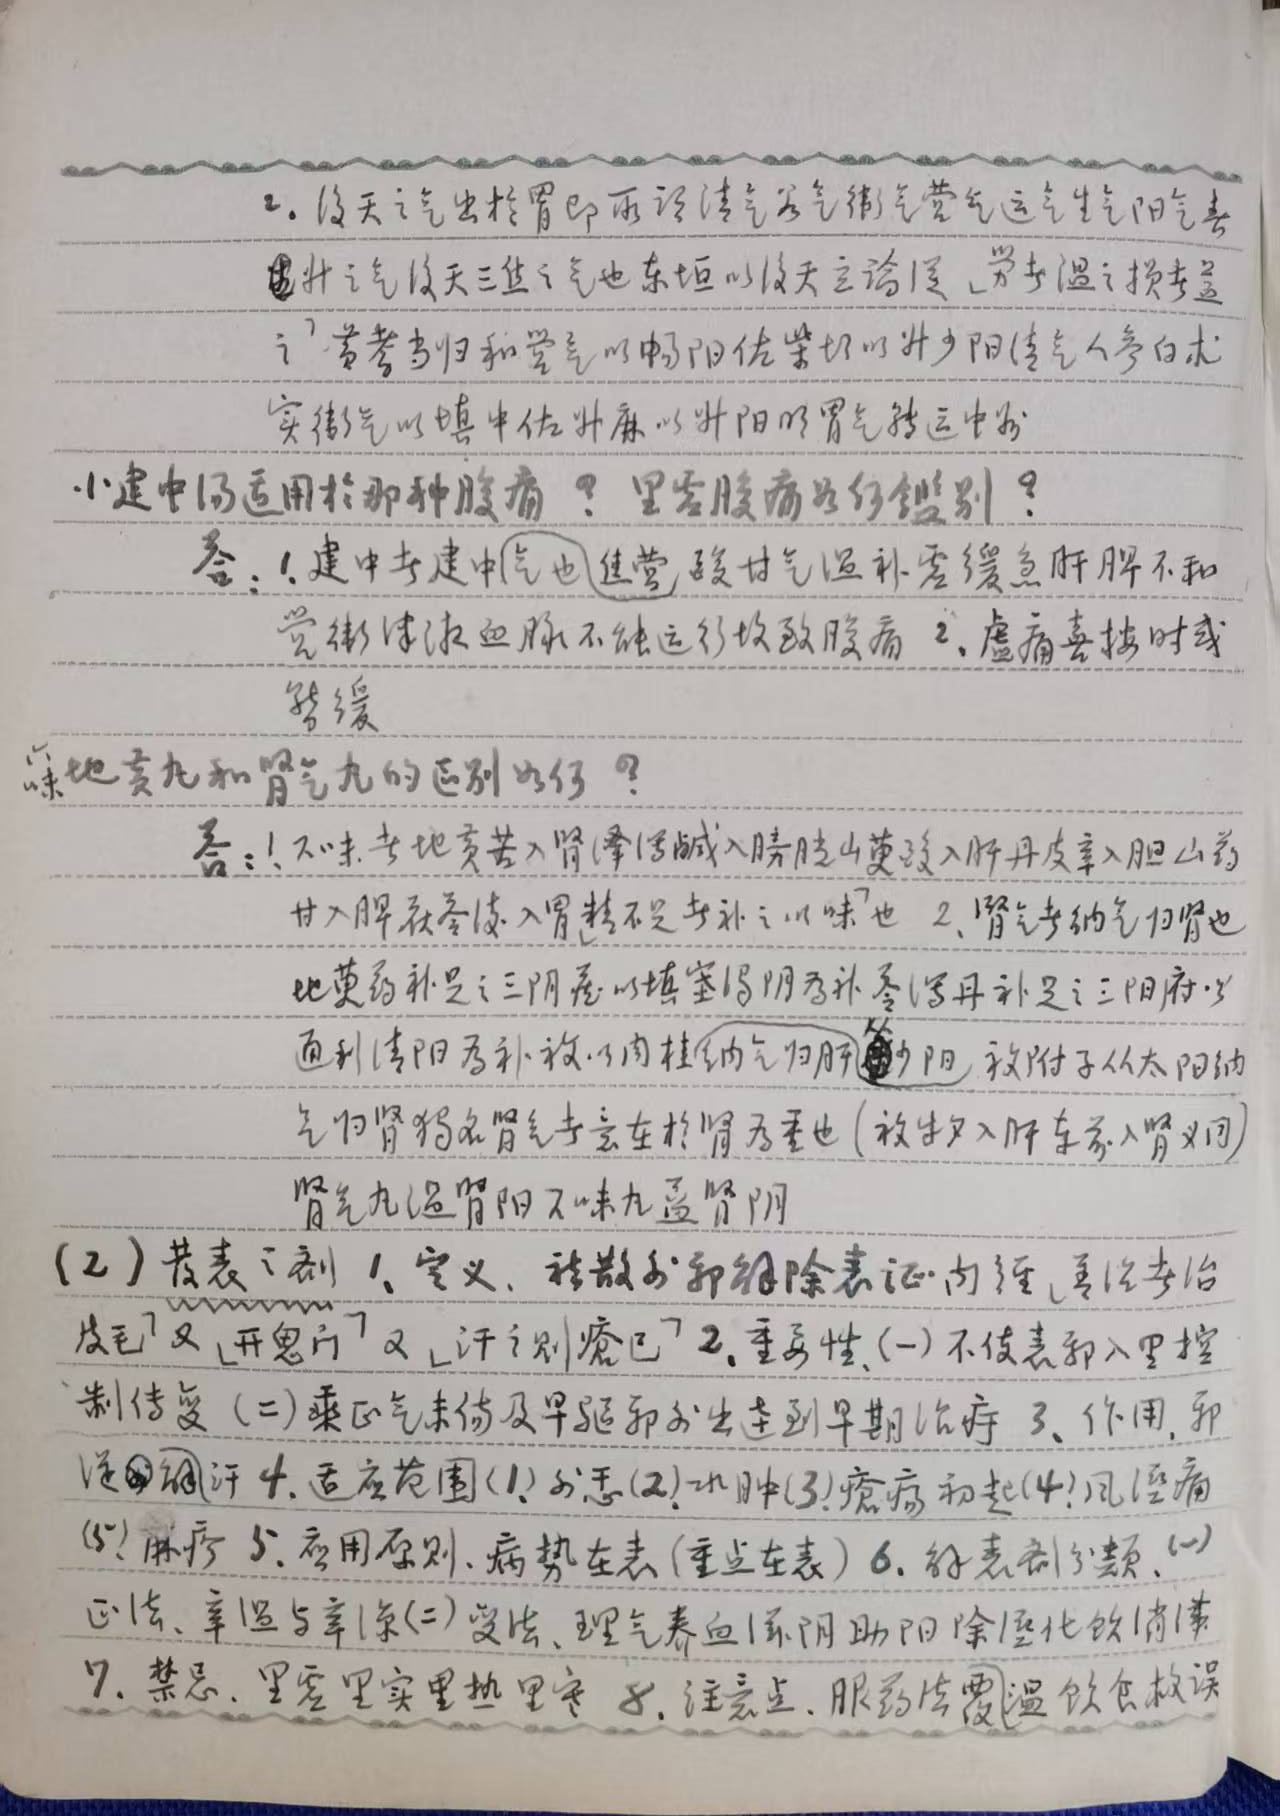 2. 後天之气出於胃即所谓清气谷气衛气营气运气生气阳气春
升之气後天三焦之气也东垣以後天立論從「劳者温之损者益
之」黄耆当归和营气以畅阳佐柴胡以升少阳清气人参白术
实衛气以填中佐升麻以升阳明胃气转运中州
小建中汤适用於那种腹痛？里虚腹痛如何鑑别？
答：1. 建中者建中气也 佳营 酸甘气温补虚缓急肝脾不和
营衛津液血脉不能运行故致腹痛 2. 虚痛喜按时或
转缓
六味地黄丸和肾气丸的区别如何？
答：1. 六味者地黄苦入肾泽泻鹹入膀胱山萸酸入肝丹皮辛入胆山药
甘入脾茯苓淡入胃「精不足者补之以味」也 2、肾气者纳气归肾也
地萸药补足之三阴藏以填塞浊阴为补苓泻丹补足之三阳府以
通利清阳为补故以肉桂纳气归肝 少阳 故附子从太阳纳
气归肾独名肾气者意在於肾为重也（故牛夕入肝车前入肾义同）
肾气丸温肾阳六味丸益肾阴
(2) 发表之剂 1、定义、疏散外邪解除表证内經「善治者治
皮毛」又「开鬼门」又「汗之则瘡已」2. 重要性、(一) 不使表邪入里控
制传变 (二) 乘正气未伤及早驱邪外出达到早期治疗 3、作用、邪
從 解汗 4. 适应范围(1) 外感(2) 水肿(3) 瘡瘍初起(4) 风湿痛
(5) 麻疹 5. 应用原则、病势在表（重点在表）6. 解表剂分類、(一)
正法、辛温与辛凉(二) 变法、理气养血滋阴助阳除湿化饮消滞
7. 禁忌、里虚里实里热里寒 8. 注意点、服药法覆温 饮食救误